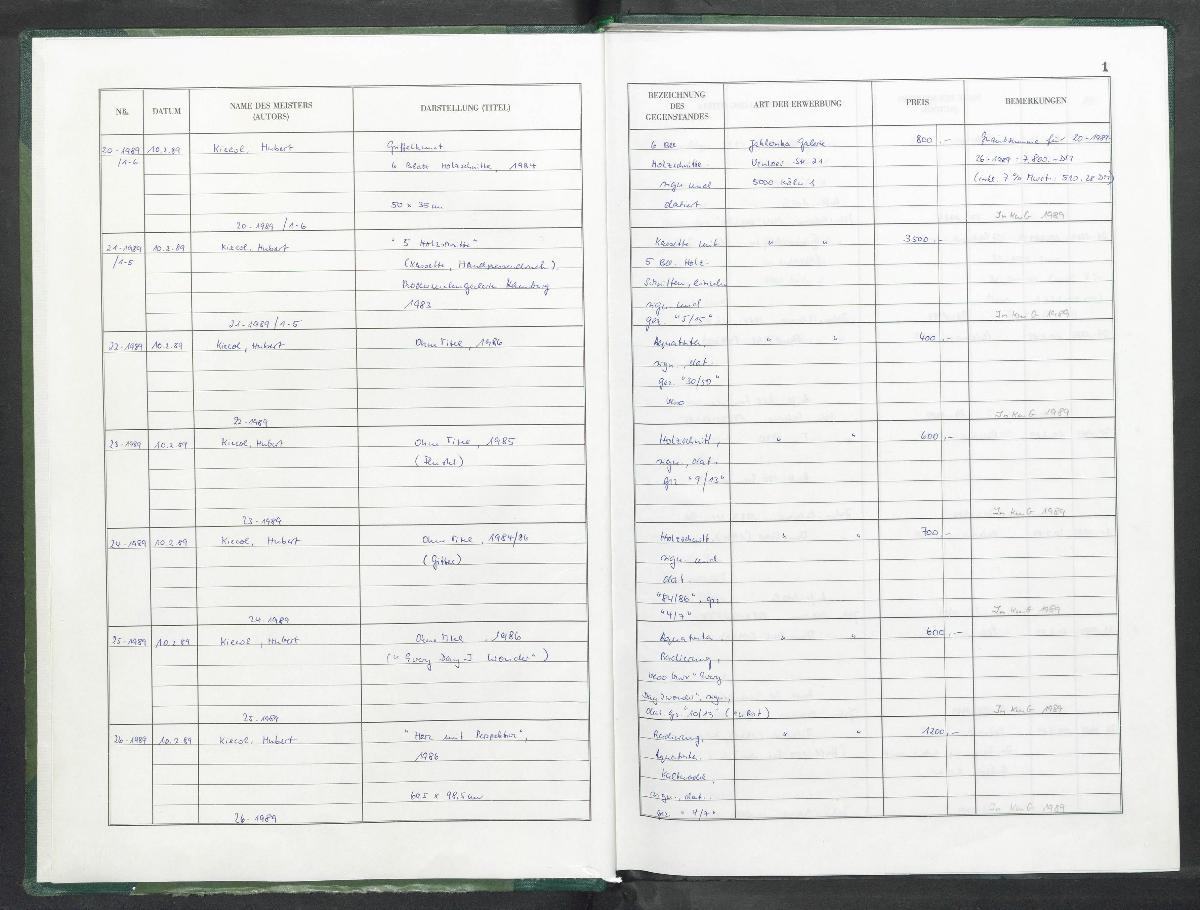 1
NR. DATUM NAME DES MEISTERS (AUTORS) DARSTELLUNG (TITEL)
BEZEICHNUNG DES GEGENSTANDES ART DER ERWERBUNG PREIS BEMERKUNGEN
20-1989 10.2.89 Kiecol, Hubert
/1-6
6 Blatt Holzschnitte, 1984
50 x 35 cm
20-1989 /1-6
6 Bll Jablonka Galerie 800,- für 20-1989-
Holzschnitte Venloer Str. 21 26-1989 = 7.800.- DM
sign. und 5000 Köln 1 (inkl. 7% Mwst. 510,28 DM)
datiert
In KuG 1989
21-1989 10.2.89 Kiecol, Hubert " 5 Holzschnitte "
/1-5 (Kassette, Handpressendruck)
Produzentengalerie Hamburg
1983
21-1989 /1-5
Kassette mit " " 3500,-
5 Bll. Holz-
schnitten, einzeln
sign. und
gez. "5/15" In KuG 1989
22-1989 10.2.89 Kiecol, Hubert Ohne Titel, 1986
22-1989
Aquatinta, " " 400,-
sign., dat.
gez. "30/50"
verso
In KuG 1989
23-1989 10.2.89 Kiecol, Hubert Ohne Titel, 1985
23-1989
Holzschnitt, " " 600,-
sign., dat.
gez. "9/13"
In KuG 1989
24-1989 10.2.89 Kiecol, Hubert Ohne Titel, 1984/86
(Gitter)
24-1989
Holzschnitt " " 700,-
sign. und
dat.
"84/86", gez.
"4/7" In KuG 1989
25-1989 10.2.89 Kiecol, Hubert Ohne Titel, 1986
(" Every Day-I Wonder")
25-1989
Aquatinta, " " 600,-
Radierung,
"Every
Day I wonder", sign.,
dat. gez. "10/15" In KuG 1989
26-1989 10.2.89 Kiecol, Hubert " Herz mit Perspektive",
1986
69,5 x 98,5 cm
26-1989
Radierung, " " 1200,-
Aquatinta,
Kaltnadel,
sign., dat.
gez. " 4/7" In KuG 1989